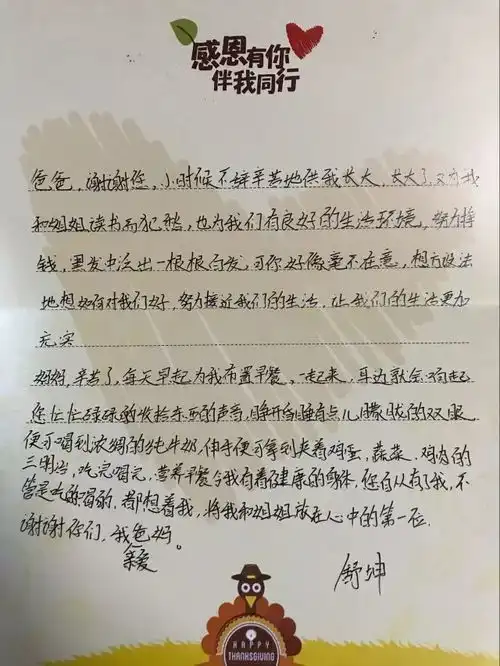 感恩有你
伴我同行
爸爸，谢谢您，小时候不辞辛苦地供我长大，长大了又为我
和姐姐读书而犯愁，也为我们有良好的生活环境，努力挣
钱，黑发中泛出一根根白发，可你好像毫不在意，想方设法
地想如何对我们好，努力接近我们的生活，让我们的生活更加
充实
妈妈，辛苦了，每天早起为我布置早餐，一起来，耳边就会响起
您忙忙碌碌的收拾东西的声音，睁开自睡有点儿朦胧的双眼
便可喝到浓绸的纯牛奶，伸手便可拿到夹着鸡蛋，蔬菜，鸡肉的
三明治，吃完喝完，营养早餐令我有着健康的身体，您自从有了我，不
管是吃的喝的，都想着我，将我和姐姐放在心中的第一位。
谢谢你们，我爸妈。
亲爱
舒坤
HAPPY
THANKSGIVING